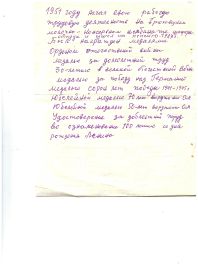 1951 году начал свою работу
трудовую деятельность на
молочно-
награжден медалью
Орденом отечественной войны
медалью за доблестный труд
30-летие в великой отечественной войне
медалью за победу над Германией
медалью сорок лет победы 1941-1945 г
Юбилейной медалью 70 лет вооружен сил
Юбилейной медалью 50 лет вооружен сил
Удостоверение за доблестный труд
во ознаменование 100 летие со дня
рождения Ленина